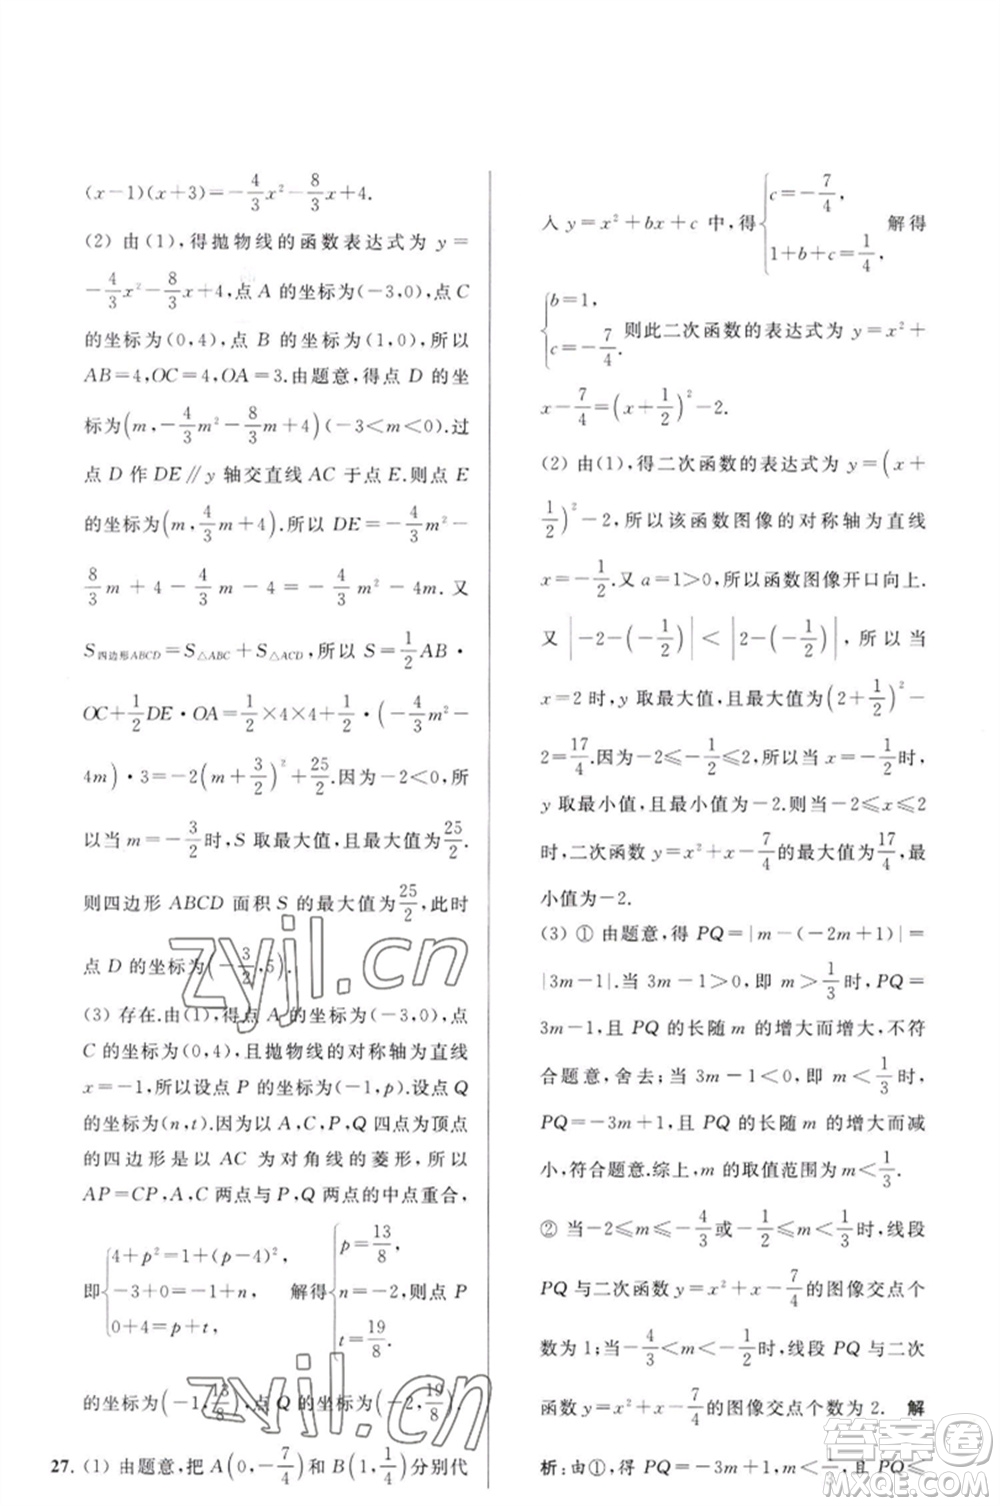 (x-1)(x+3)=-\frac{4}{3}x²-\frac{8}{3}x+4.
(2) 由(1),得抛物线的函数表达式为 y=
-\frac{4}{3}x²-\frac{8}{3}x+4,点 A 的坐标为(-3,0),点 C
的坐标为(0,4),点 B 的坐标为(1,0),所以
AB=4,OC=4,OA=3.由题意,得点 D 的坐
标为(m,-\frac{4}{3}m²-\frac{8}{3}m+4)(-3<m<0).过
点 D 作 DE∥y 轴交直线 AC 于点 E.则点 E
的坐标为(m,\frac{4}{3}m+4).所以 DE=-\frac{4}{3}m²-
\frac{8}{3}m+4-\frac{4}{3}m-4=-\frac{4}{3}m²-4m.又
S四边形ABCD=S△ABC+S△ACD,所以 S=\frac{1}{2}AB·
OC+\frac{1}{2}DE·OA=\frac{1}{2}×4×4+\frac{1}{2}·(-\frac{4}{3}m²-
4m)·3=-2(m+\frac{3}{2})²+\frac{25}{2}.因为-2<0,所
以当 m=-\frac{3}{2}时,S 取最大值,且最大值为\frac{25}{2}.
则四边形 ABCD 面积 S 的最大值为\frac{25}{2},此时
点 D 的坐标为(-\frac{3}{2},5).
(3) 存在.由(1),得点 A 的坐标为(-3,0),点
C 的坐标为(0,4),且抛物线的对称轴为直线
x=-1,所以设点 P 的坐标为(-1,p).设点 Q
的坐标为(n,t).因为以 A,C,P,Q 四点为顶点
的四边形是以 AC 为对角线的菱形,所以
AP=CP,A,C 两点与 P,Q 两点的中点重合,
即{4+p²=1+(p-4)², -3+0=-1+n, 0+4=p+t, 解得{p=\frac{13}{8}, n=-2, t=\frac{19}{8}. 则点 P
的坐标为(-1,\frac{13}{8}),点 Q 的坐标为(-2,\frac{19}{8}).
27. (1) 由题意,把 A(0,-\frac{7}{4})和 B(1,\frac{1}{4})分别代
入 y=x²+bx+c 中,得{c=-\frac{7}{4}, 1+b+c=\frac{1}{4}, 解得
{b=1, c=-\frac{7}{4}. 则此二次函数的表达式为 y=x²+
x-\frac{7}{4}=(x+\frac{1}{2})²-2.
(2) 由(1),得二次函数的表达式为 y=(x+
\frac{1}{2})²-2,所以该函数图像的对称轴为直线
x=-\frac{1}{2}.又 a=1>0,所以函数图像开口向上.
又 |-2-(-\frac{1}{2})|<|2-(-\frac{1}{2})|,所以当
x=2 时,y 取最大值,且最大值为(2+\frac{1}{2})²-
2=\frac{17}{4}.因为-2≤-\frac{1}{2}≤2,所以当 x=-\frac{1}{2}时,
y 取最小值,且最小值为-2.则当-2≤x≤2
时,二次函数 y=x²+x-\frac{7}{4}的最大值为\frac{17}{4},最
小值为-2.
(3) ① 由题意,得 PQ=|m-(-2m+1)|=
|3m-1|.当 3m-1>0,即 m>\frac{1}{3}时,PQ=
3m-1,PQ 的长随 m 的增大而增大,不符
合题意,舍去;当 3m-1<0,即 m<\frac{1}{3}时,
PQ=-3m+1,PQ 的长随 m 的增大而减
小,符合题意.综上,m 的取值范围为 m<\frac{1}{3}.
② 当-2≤m≤-\frac{4}{3}或-\frac{1}{2}≤m<\frac{1}{3}时,线段
PQ 与二次函数 y=x²+x-\frac{7}{4}的图像交点个
数为 1;当-\frac{4}{3}<m<-\frac{1}{2}时,线段 PQ 与二次
函数 y=x²+x-\frac{7}{4}的图像交点个数为 2. 解
析:由①,得 PQ=-3m+1,且 PQ≤
zyjl.cn
答案圈
MXQE.COM